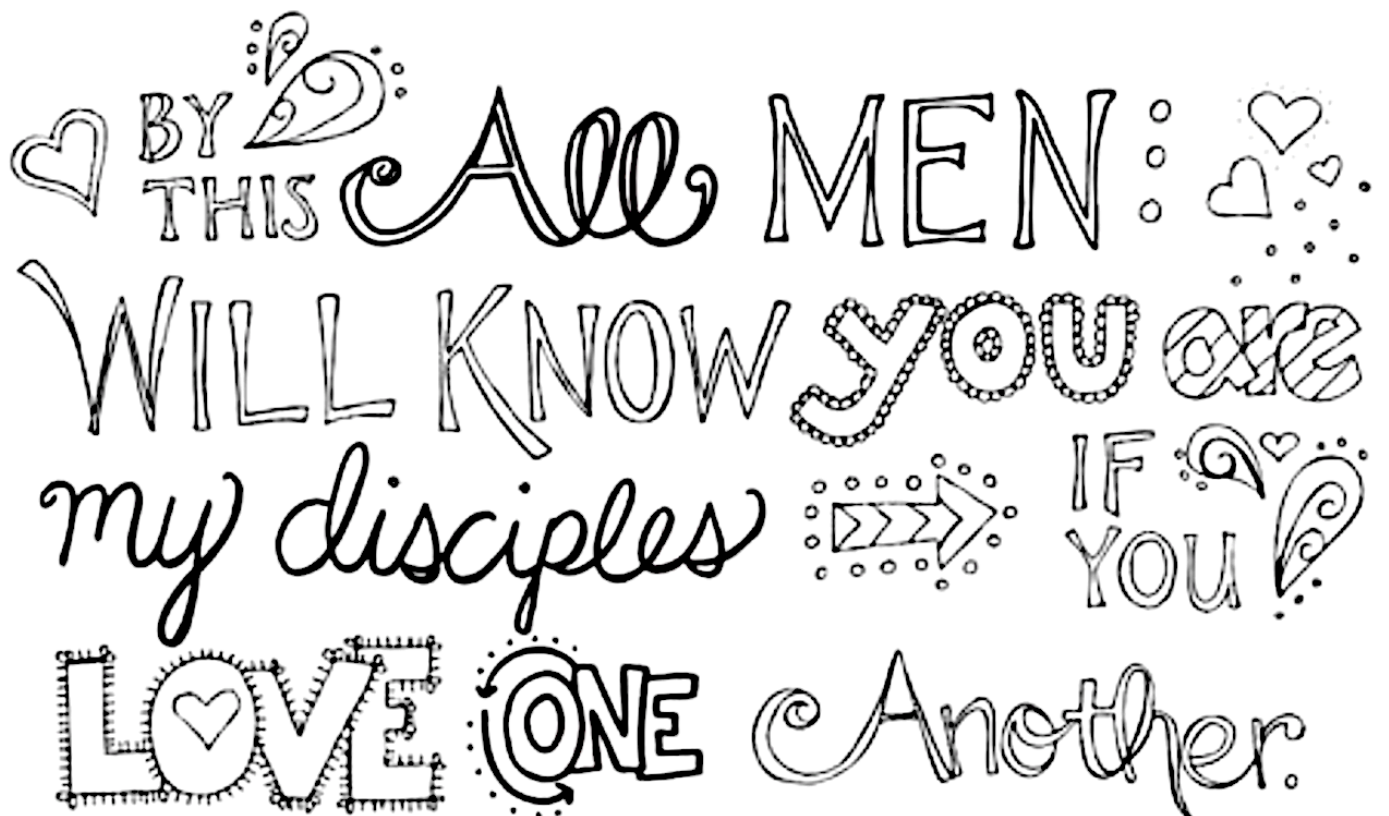 BY THIS All MEN
WILL KNOW you are
my disciples IF YOU
LOVE ONE Another.